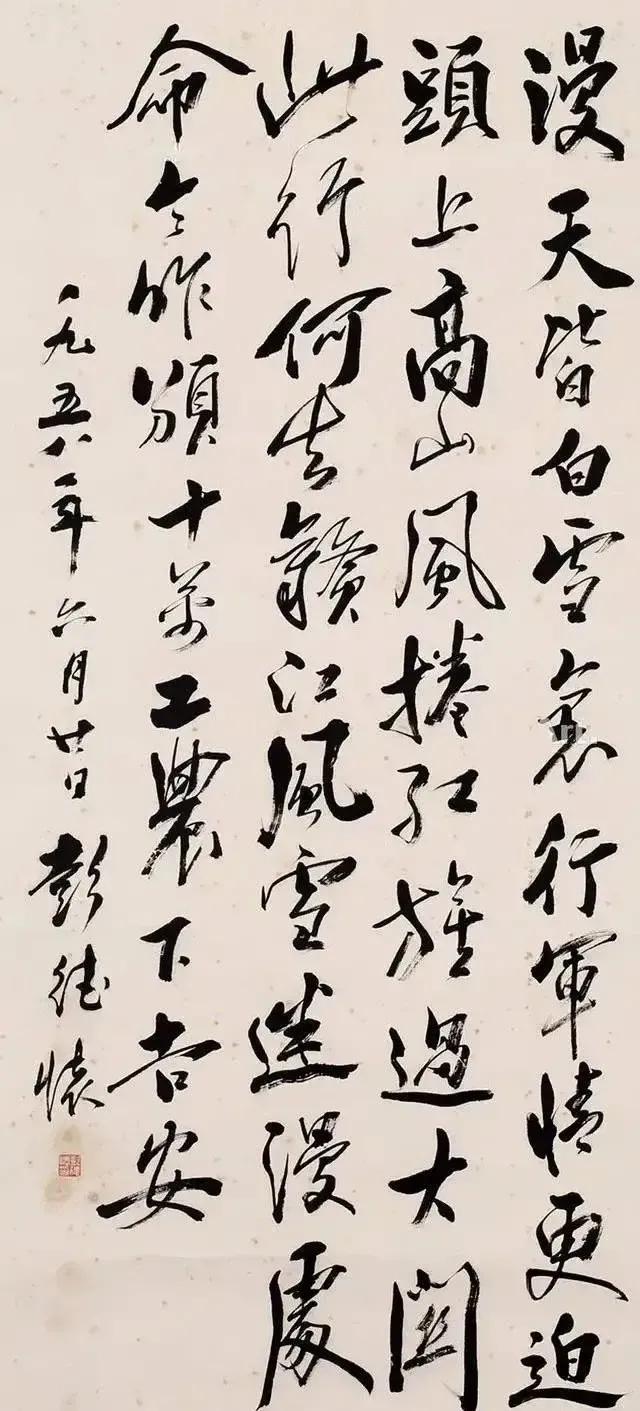 漫天皆白雪裏行軍情更迫
頭上高山風捲紅旗過大關
此行何去贛江風雪迷漫處
命令昨頒十萬工農下吉安
一九五八年六月廿日彭德懷